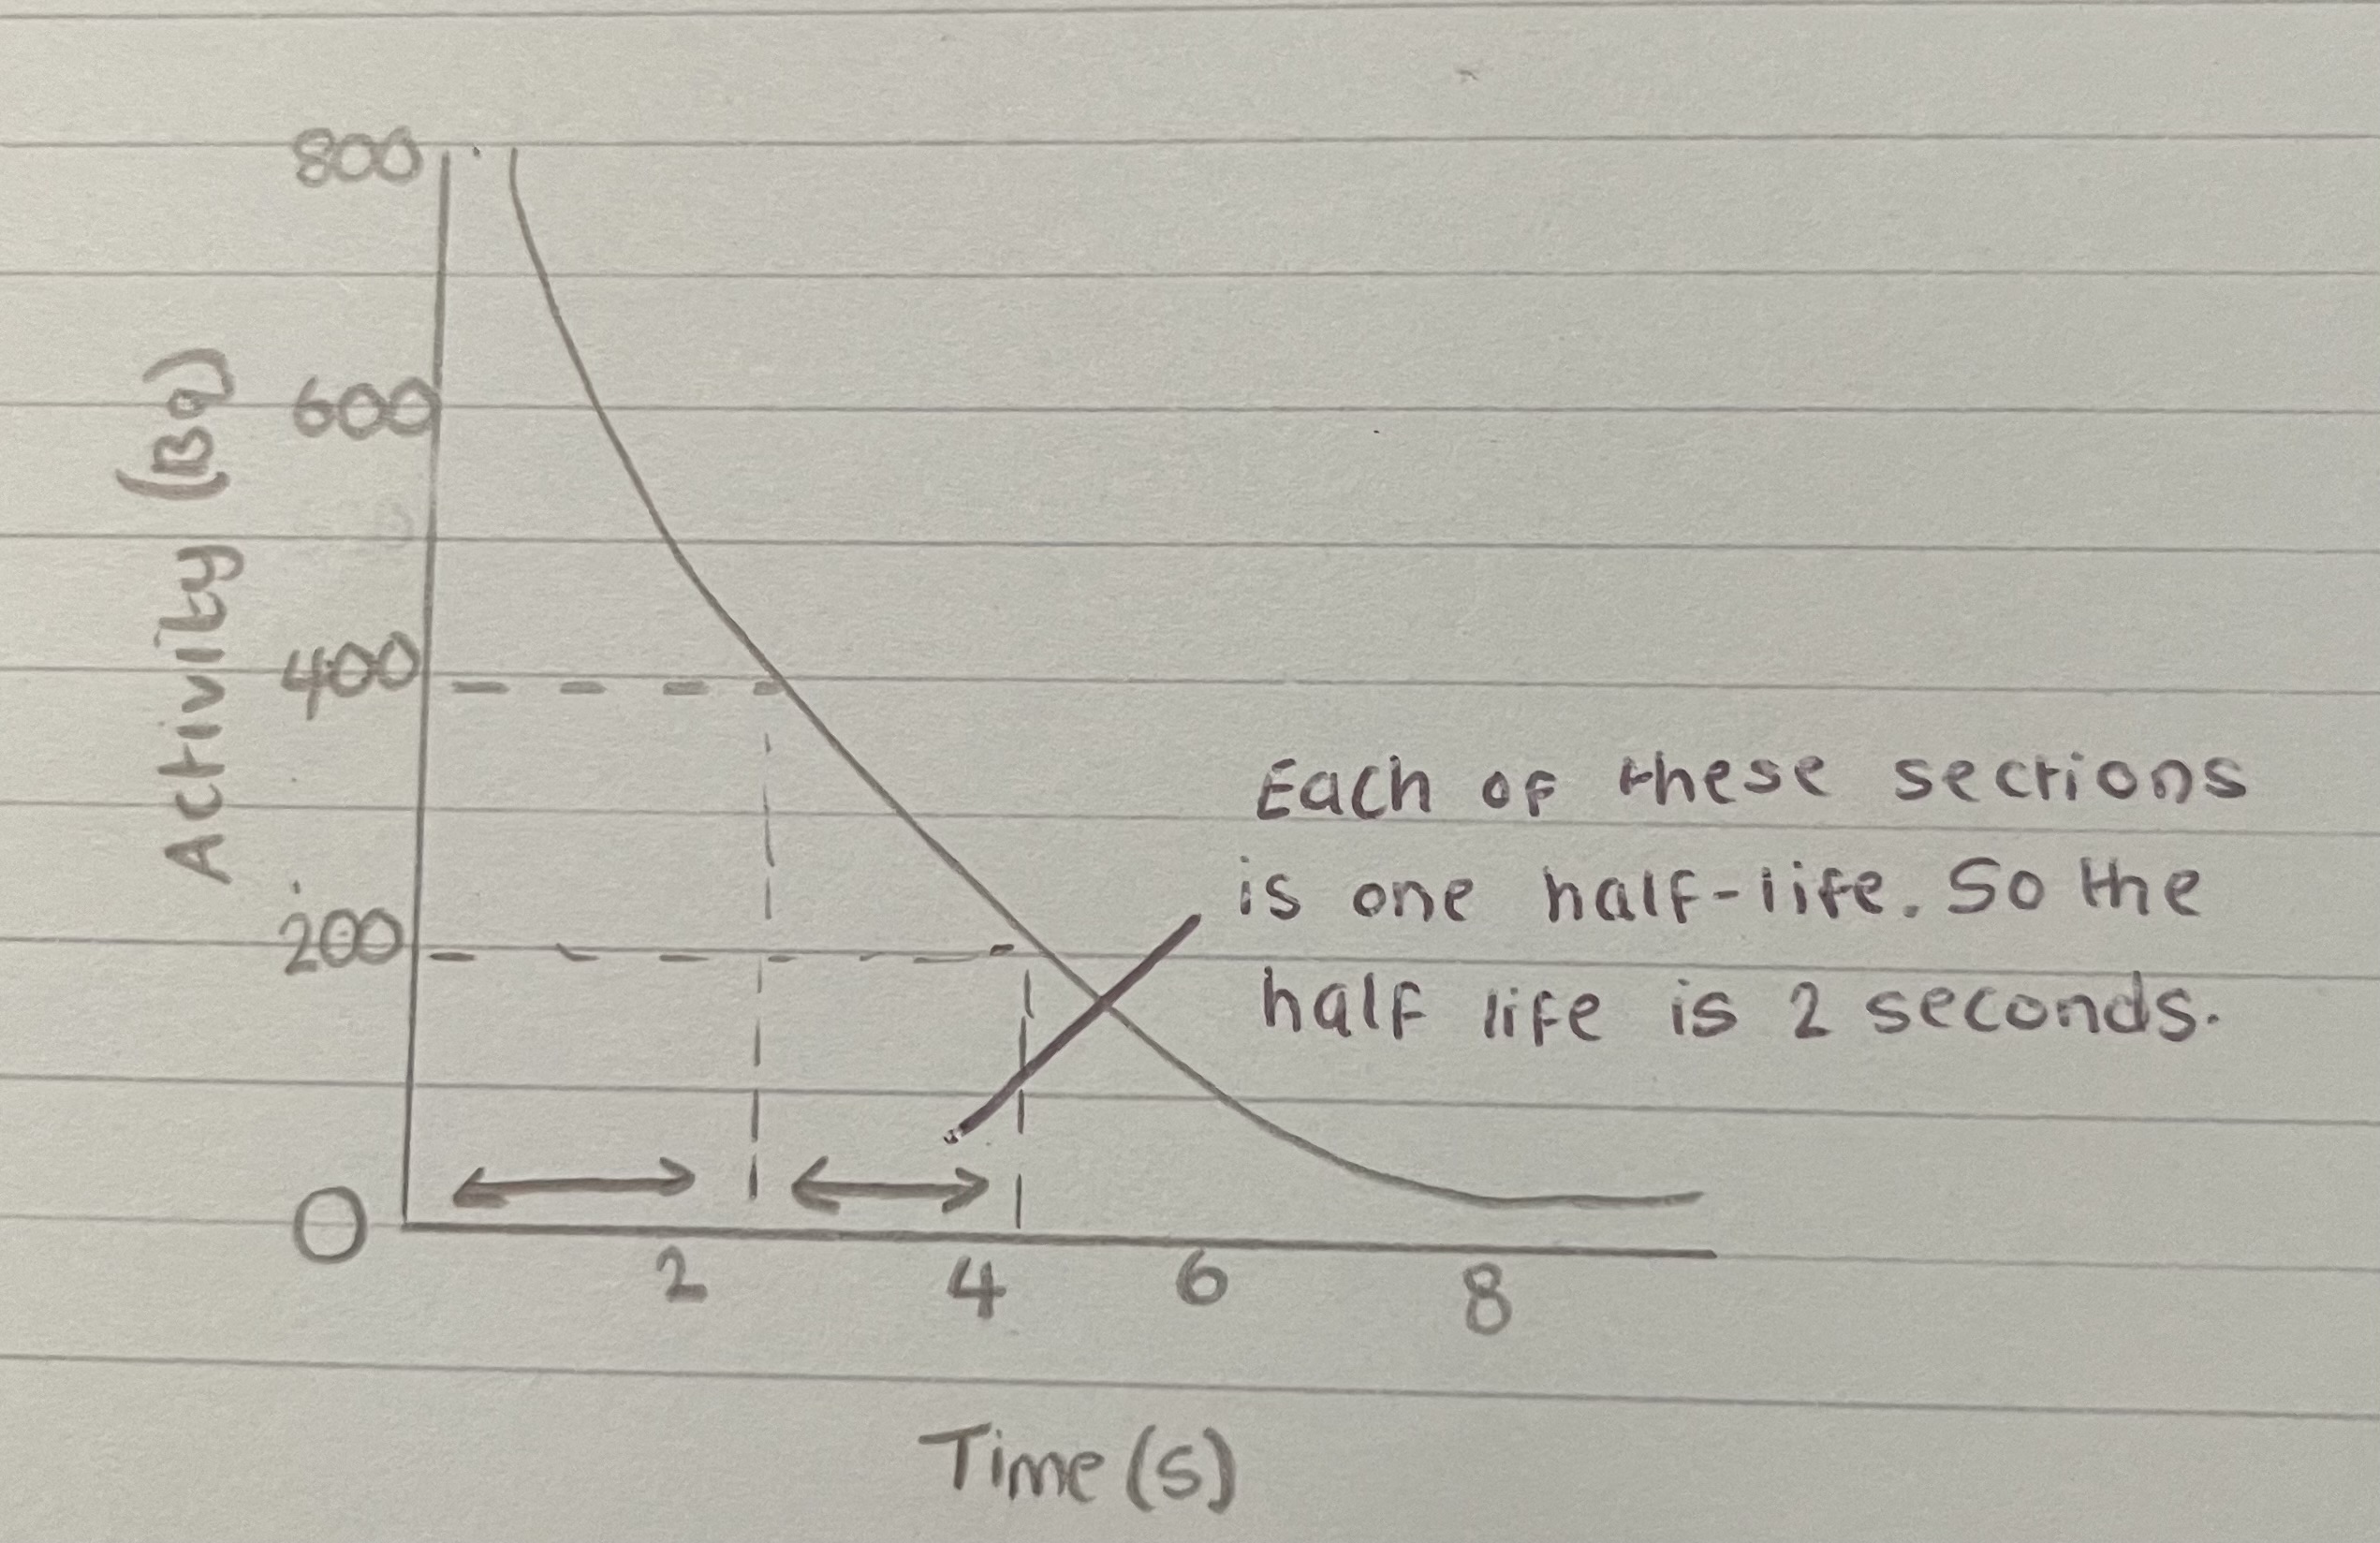 800
600
400
200
0
Activity (Bq)
Each of these sections
is one half-life. So the
half life is 2 seconds.
2 4 6 8
Time (s)